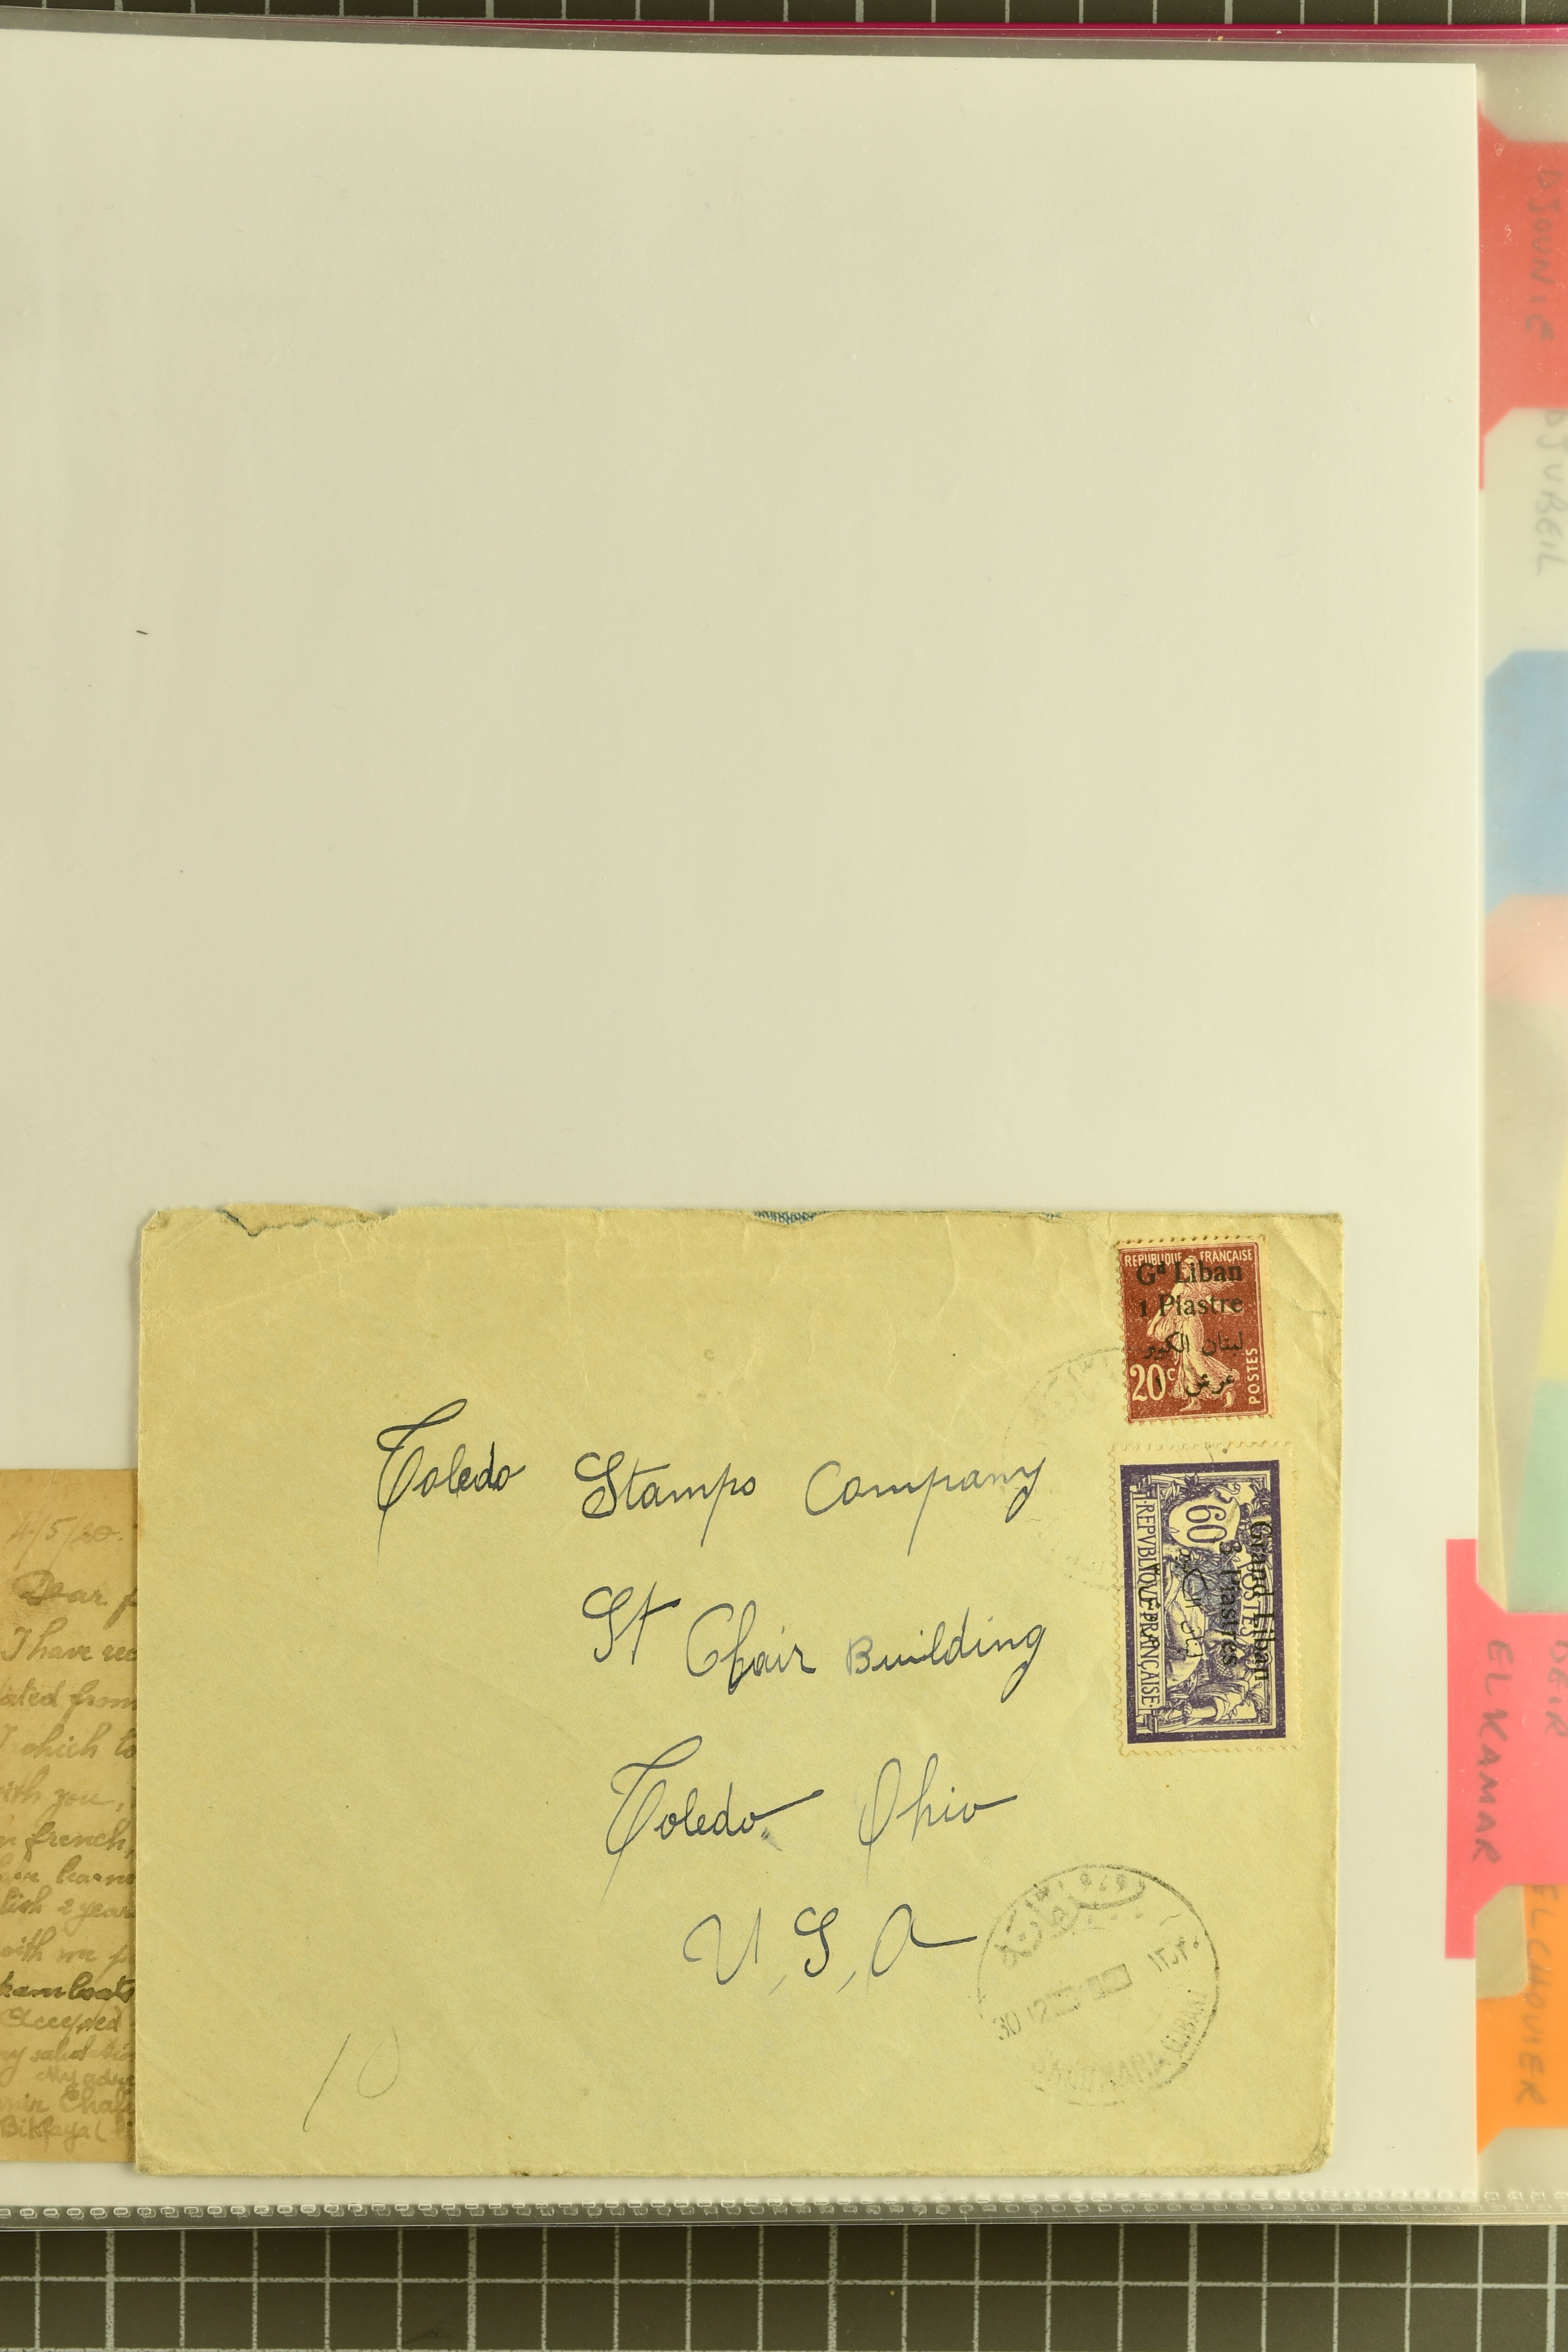 DJOUNIE
DJUBEIL
DEIR
EL KAMAR
EL CHOUIER
REPUBLIQUE FRANÇAISE
Gd Liban
1 Piastre
لبنان الكبير
غرش
20c
POSTES
Grand Liban
3 Piastres
60
POSTES
REPVBLIQVE FRANÇAISE
Toledo Stamps Company
St Chair Building
Toledo Ohio
U, S, A
30 12
10
4/5/20.
Dear
I have rec
ated from
which to
ith you,
n french,
learn
lish 2 year
with me
Accepted
my salutation
My adre
Bikfaya (